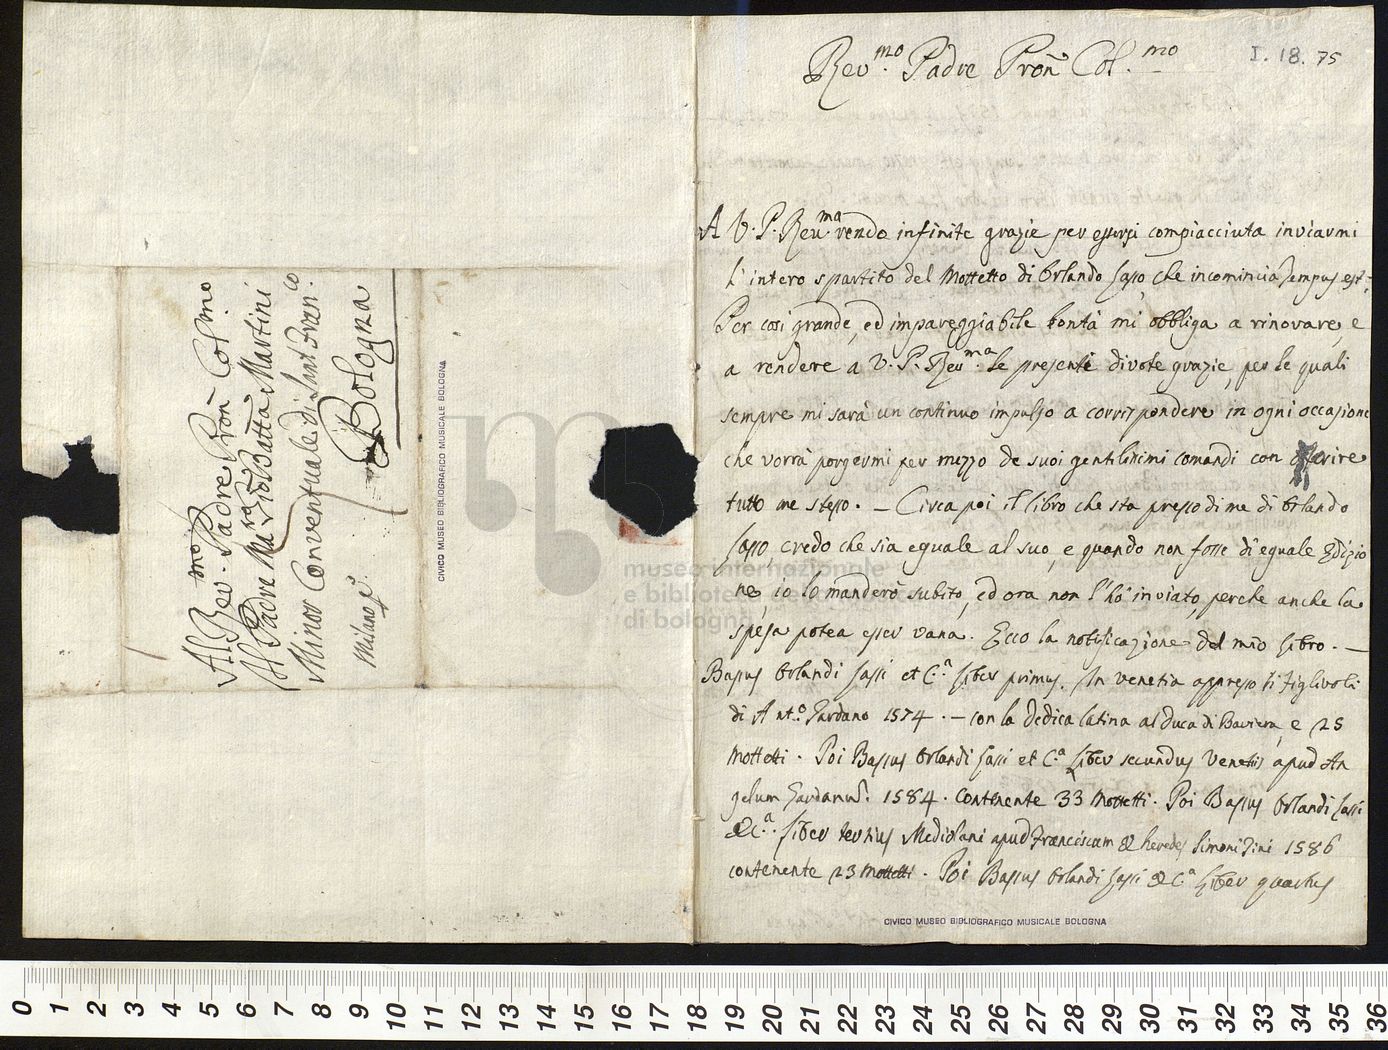 Al Rev.mo Padre Pron Col.mo
Il Padre Ma.ro Gio Batta Martini
Minor Conventuale di Sant Fran.co
Bologna
Milano p.
CIVICO MUSEO BIBLIOGRAFICO MUSICALE BOLOGNA
museo internazionale
e biblioteca della musica
di bologna
I. 18. 75
Rev.mo Padre Pron Col.mo
A V. P. Rev.ma rendo infinite grazie per essersi compiacciuta inviarmi
l'intero spartito del Mottetto di Orlando Lasso, che incomincia Tempus est.
Per così grande, ed impareggiabile bontà mi obbliga a rinovare, e
a rendere a V. P. Rev.ma le presenti divote grazie, per le quali
sempre mi sarà un continuo impulso a corrispondere in ogni occasione
che vorrà porgermi per mezzo de suoi gentilissimi comandi con offerire
tutto me stesso. – Circa poi il libro che sta presso di me di Orlando
Lasso, credo che sia eguale al suo, e quando non fosse di eguale Edizio
ne, io lo manderò subito, ed ora non l'hò inviato, perche anche la
spesa potea esser vana. Ecco la notificazione del mio Libro. –
Bassus Orlandi Lassi et C.a Liber primus. In Venetia appresso li Figlivoli
di Ant.o Gardano 1574. – con la Dedica latina al Duca di Baviera, e 25
Mottetti. Poi Bassus Orlandi Lassi et C.a Liber secundus Venetiis apud An
gelum Gardanum. 1584. contenente 33 Mottetti. Poi Bassus Orlandi Lassi
& C.a Liber tertius Mediolani apud Franciscum & heredes Simoni Tini 1586
contenente 23 Mottetti. Poi Bassus Orlandi Lassi & C.a Liber quartus
CIVICO MUSEO BIBLIOGRAFICO MUSICALE BOLOGNA
0 1 2 3 4 5 6 7 8 9 10 11 12 13 14 15 16 17 18 19 20 21 22 23 24 25 26 27 28 29 30 31 32 33 34 35 36